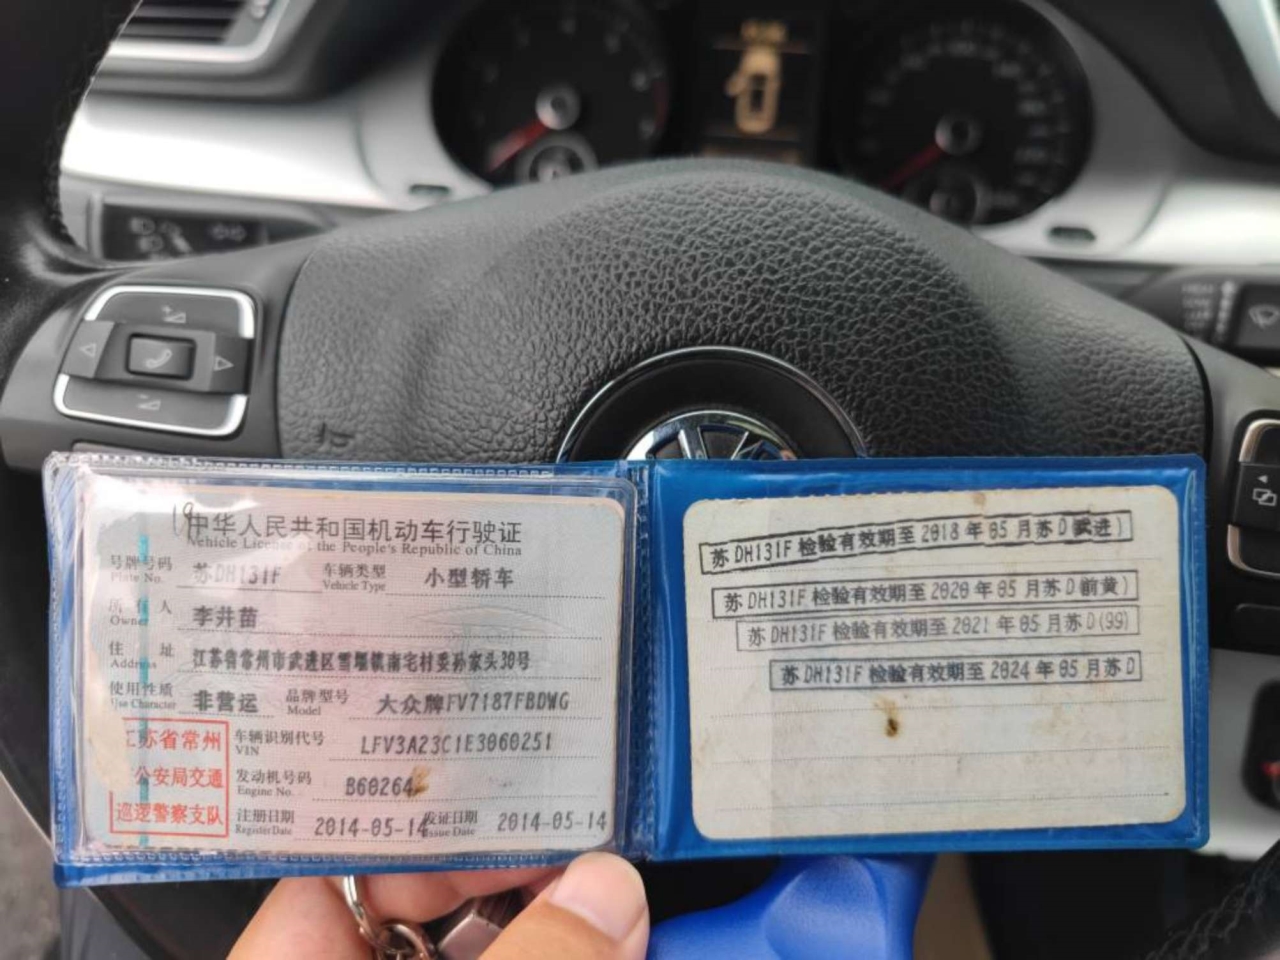 中华人民共和国机动车行驶证
Vehicle License of the People's Republic of China
号牌号码 Plate No. 苏DH131F 车辆类型 Vehicle Type 小型轿车
所有人 Owner 李井苗
住址 Address 江苏省常州市武进区雪堰镇南宅村委孙家头30号
使用性质 Use Character 非营运 品牌型号 Model 大众牌FV7187FBDWG
江苏省常州
公安局交通
巡逻警察支队
车辆识别代号 VIN LFV3A23C1E3060251
发动机号码 Engine No. B60264
注册日期 Register Date 2014-05-14 发证日期 Issue Date 2014-05-14
苏DH131F 检验有效期至 2018 年 05 月苏D(武进)
苏DH131F 检验有效期至 2020 年 05 月苏D(前黄)
苏DH131F 检验有效期至 2021 年 05 月苏D(99)
苏DH131F 检验有效期至 2024 年 05 月苏D